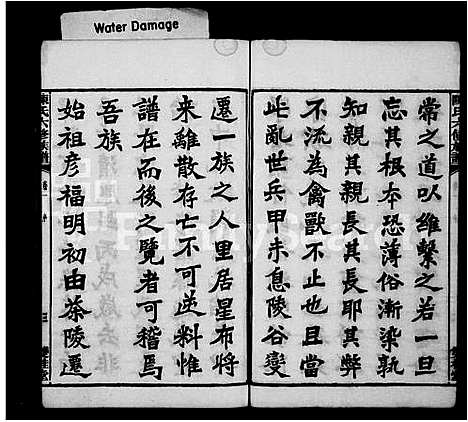 Water Damage
常之道以維繫之若一旦
忘其根本恐薄俗漸染孰
知親其親長其長耶其弊
不流為禽獸不止也且當
此亂世兵甲未息陵谷變
遷一族之人里居星布將
来離散存亡不可逆料惟
譜在而後之覽者可稽焉
吾族
始祖彦福明初由茶陵遷
陳氏六修族譜
FamilySearch